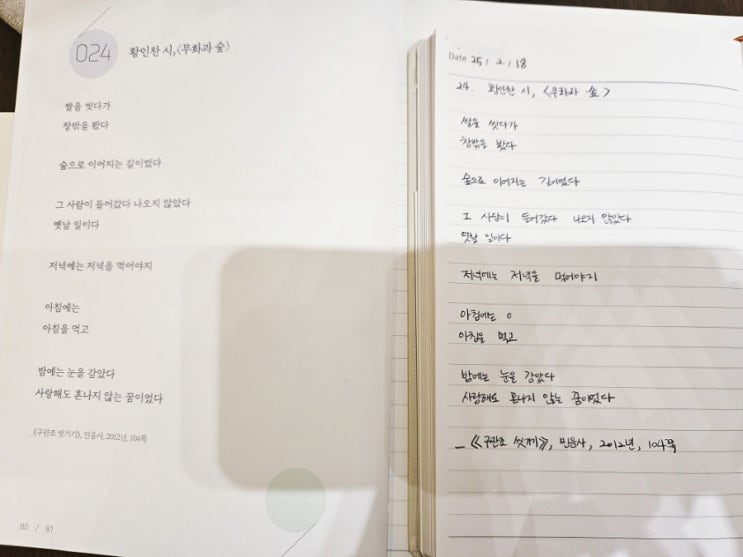 024
황인찬 시, 〈무화과 숲〉
쌀을 씻다가
창밖을 봤다
숲으로 이어지는 길이었다
그 사람이 들어갔다 나오지 않았다
옛날 일이다
저녁에는 저녁을 먹어야지
아침에는
아침을 먹고
밤에는 눈을 감았다
사랑해도 혼나지 않는 꿈이었다
_《구관조 씻기기》, 민음사, 2012년, 104쪽
80 / 81
Date 25 / 2 / 18
24. 황인찬 시, <무화과 숲>
쌀을 씻다가
창밖을 봤다
숲으로 이어지는 길이었다
그 사람이 들어갔다 나오지 않았다
옛날 일이다
저녁에는 저녁을 먹어야지
아침에는
아침을 먹고
밤에는 눈을 감았다
사랑해도 혼나지 않는 꿈이었다
_《구관조 씻기》, 민음사, 2012년, 104쪽